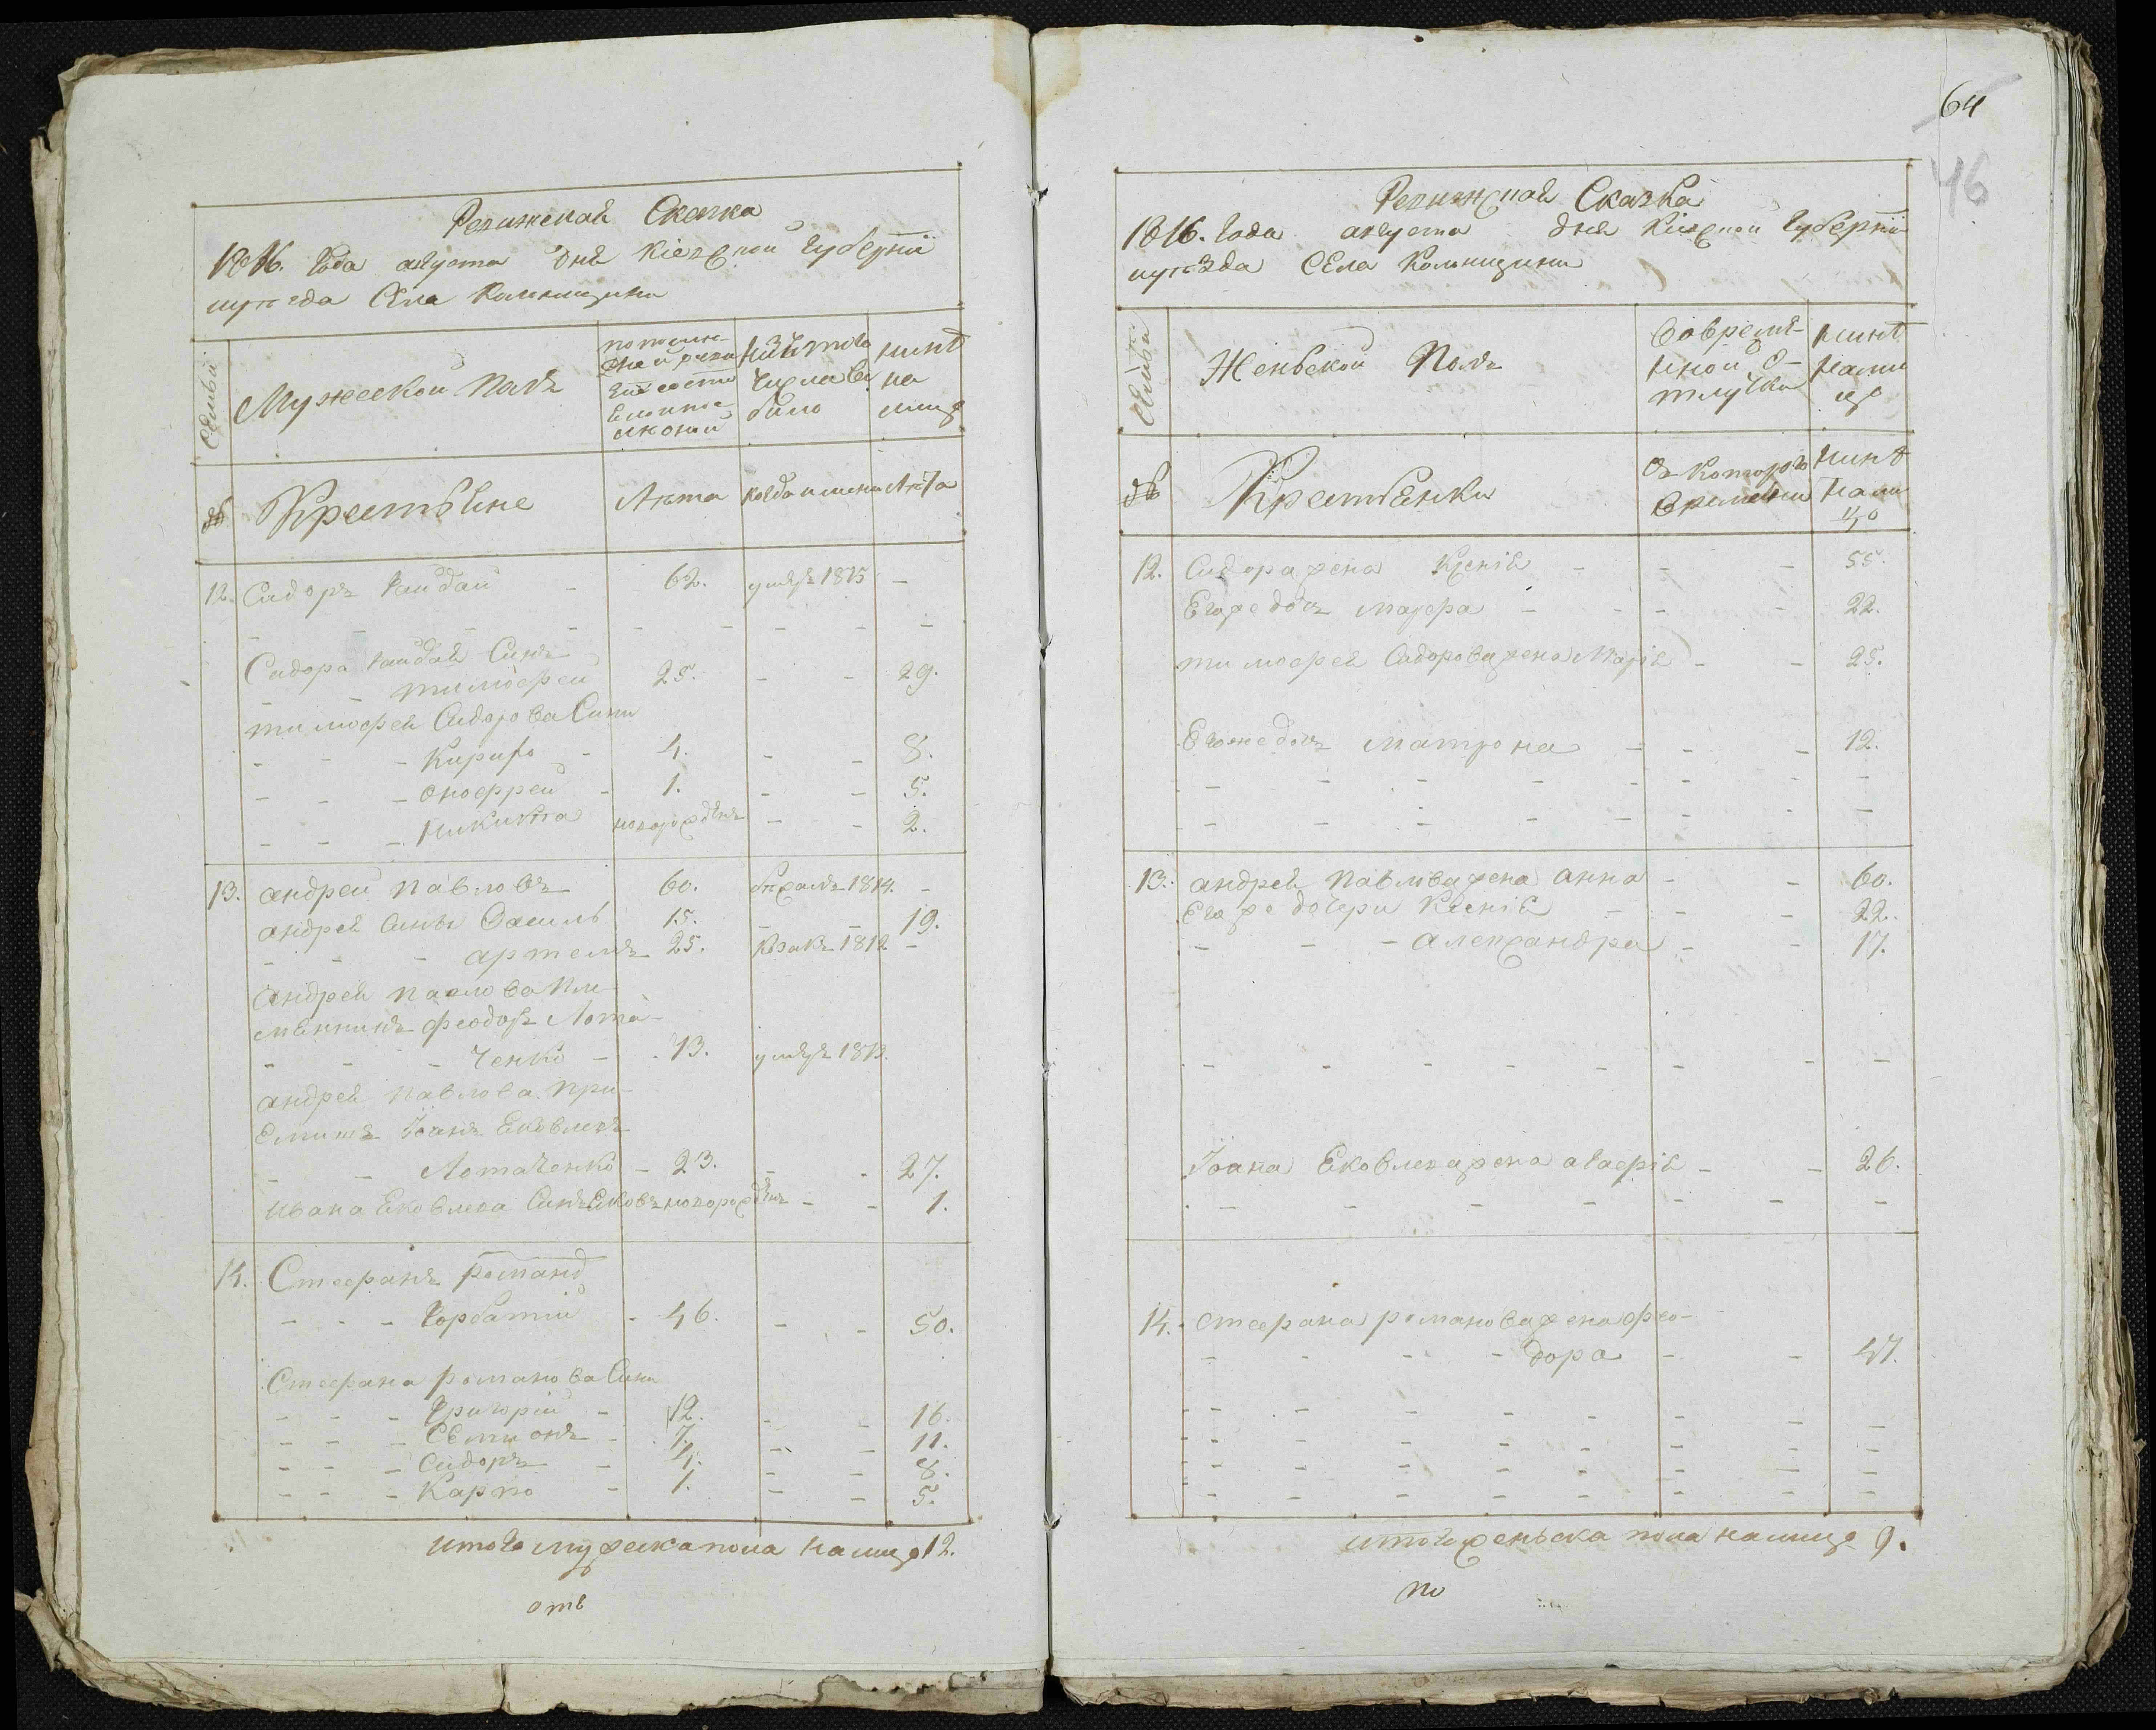 Ревижская Сказка
1816. Года августа дня Кіевской Губерніи
иуезда Села Колнищина
Семьи
Мужеской Полъ
По послед-
ней ревизіи
состо-
было
нинѣ
на
лице
№
Крестьяне
Лѣта
когда имени
Лѣта
12. Сидоръ Гайдай - 62. умеръ 1815 -
Сидора Гайдая Синъ
- тимофей 25. - - 29.
тимофея Сидорова Сини
- - - Кирило - 4. - - 8.
- - - Оноффрей - 1. - - 5.
- - - Никита новорожденъ - - 2.
13. андрей Павловъ 60. 1814. -
андрея Сины Василь 15. - - 19.
- - - артемъ 25. Козакъ 1812 -
Андрея Павлова Пле-
менникъ феодоръ Лота-
- - - ченко - 13. умеръ 1813.
андрея Павлова При-
емишъ Іоанъ Ековлевъ
- - Лотаченко - 23. - - 27.
Ивана Ековлева Синъ Яковъ новорожденъ - - 1.
14. Стефанъ романовъ
- - - Горбатій - 46. - - 50.
Стефана романова Сини
- - - Григорій - 12. - - 16.
- - - Семионъ - 7. - - 11.
- - - Сидоръ - 4. - - 8.
- - - Карпо - 1. - - 5.
итого мужеска пола на лице 12.
отв
64
46
Ревижская Сказка
1816. Года августа дня Кіевской Губерніи
иуезда Села Колнищини
Семьи
Женьской Полъ
Во време-
нной о-
тлучки
нинѣ
на ли
це
№
Крестьянки
Съ которого
времени
нинѣ
на ли
це
12. Сидора жена Ксенія - - - 55.
Его же дочь Марфа - - - 22.
тимофея Сидорова жена Марія - - 25.
Его же дочь Матрона - - - 12.
13. андрея Павлова жена анна - - 60.
Его же дочери Ксенія - - - 22.
- - - александра - - 17.
Іоана Ековлева жена агафія - - 26.
14. Стефана романова жена фео-
- - - - дора - - 47.
итого женьска пола на лице 9.
по